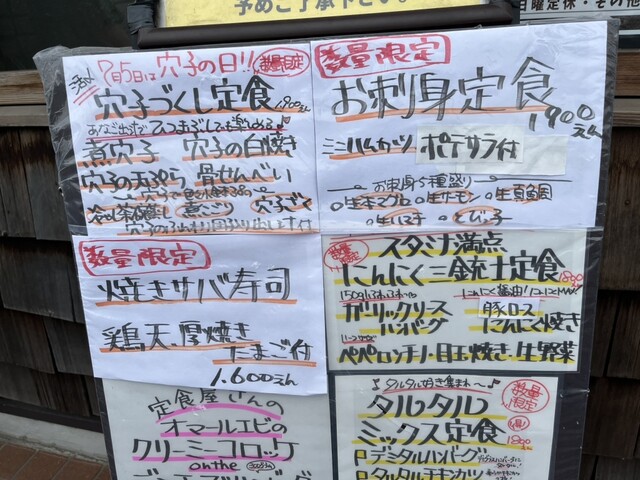 予めご了承下さい。
日曜定休・その他
7月5日は穴子の日!!
数量限定
穴子づくし定食
あなご出汁で ひつまぶしでも楽しめる♪
煮穴子 穴子の白焼き
穴子の天ぷら 骨せんべい
冷やし茶碗蒸し 煮こごり 穴子ごく
数量限定
お刺身定食
1900えん
ミニハムカツ ポテサラ付
お刺身5種盛り
生本マグロ 生サーモン 生真鯛
とびっ子
数量限定
焼きサバ寿司
鶏天、厚焼き
たまご付
1.600えん
数量限定
スタミナ満点
にんにく三銃士定食
にんにく醤油
ガーリックリス
ハンバーグ
豚ロース
にんにく焼き
ペペロンチーノ・目玉焼き・生野菜
定食屋さんの
オマールエビの
クリーミーコロッケ
on the
タルタル好き集まれ〜♪
数量限定
タルタル
ミックス定食
デミタルハンバーグ
タルタルチキンカツ